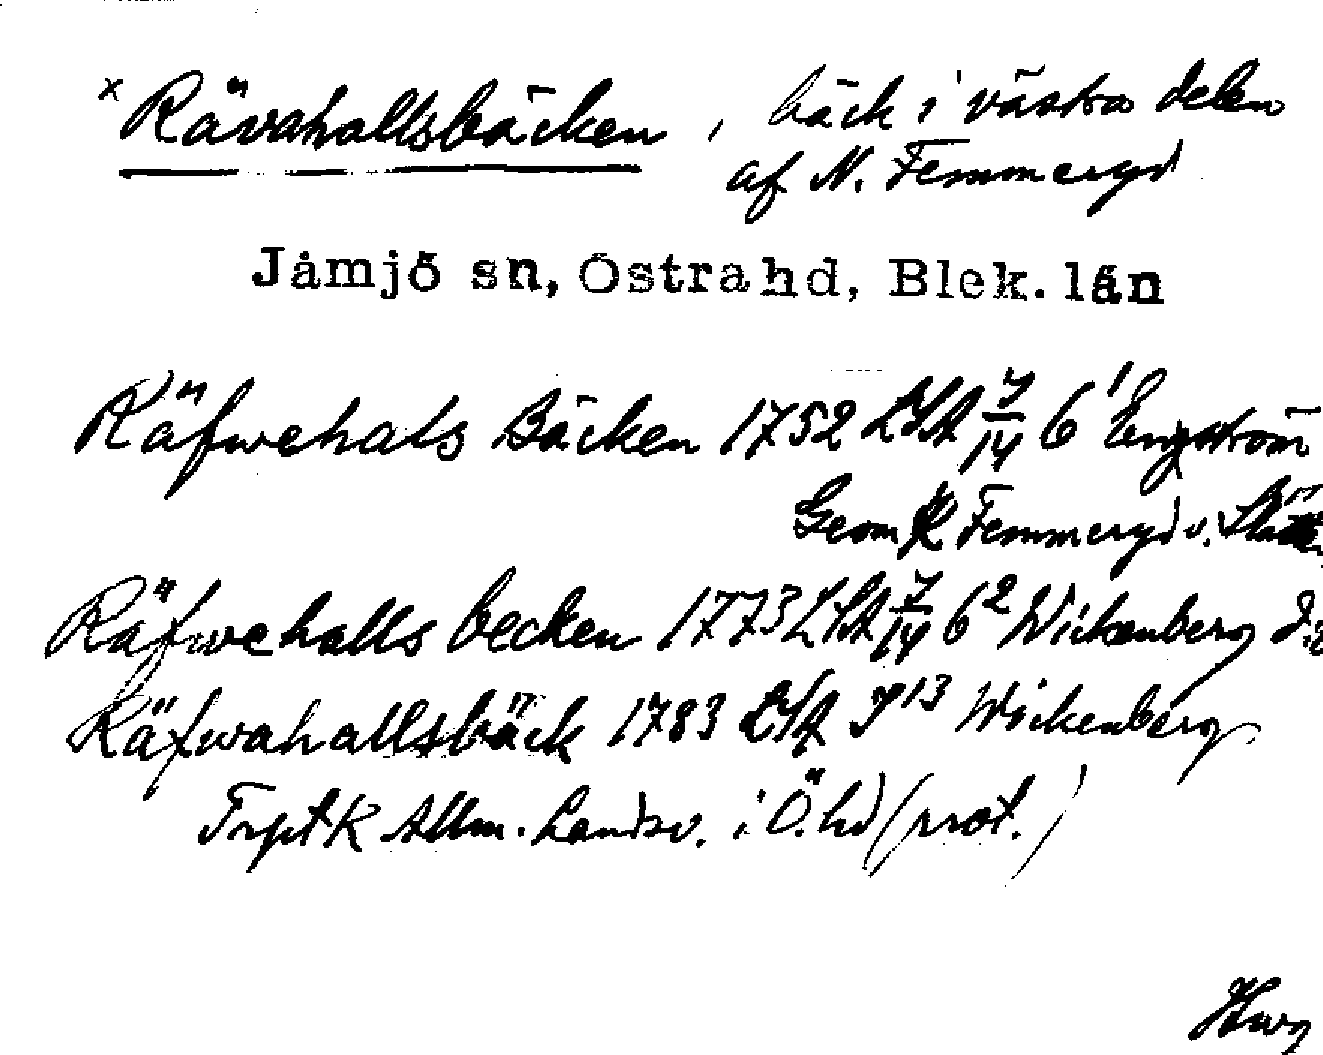 x Rävahallsbäcken, bäck i västra delen
af N. Femmeryd
Jämjö sn, Östra hd, Blek. län
Räfwehals Bäcken 1752 LSA 7/14 6¹ Engström
Geom K Femmeryd v.
Räfwehalls becken 1773 LSA 7/14 6² Wickenberg
Räfwahallsbäck 1783 LSA 9¹³ Wickenberg
TrptK Allm. Landsv. i Ö. hd (prot.)